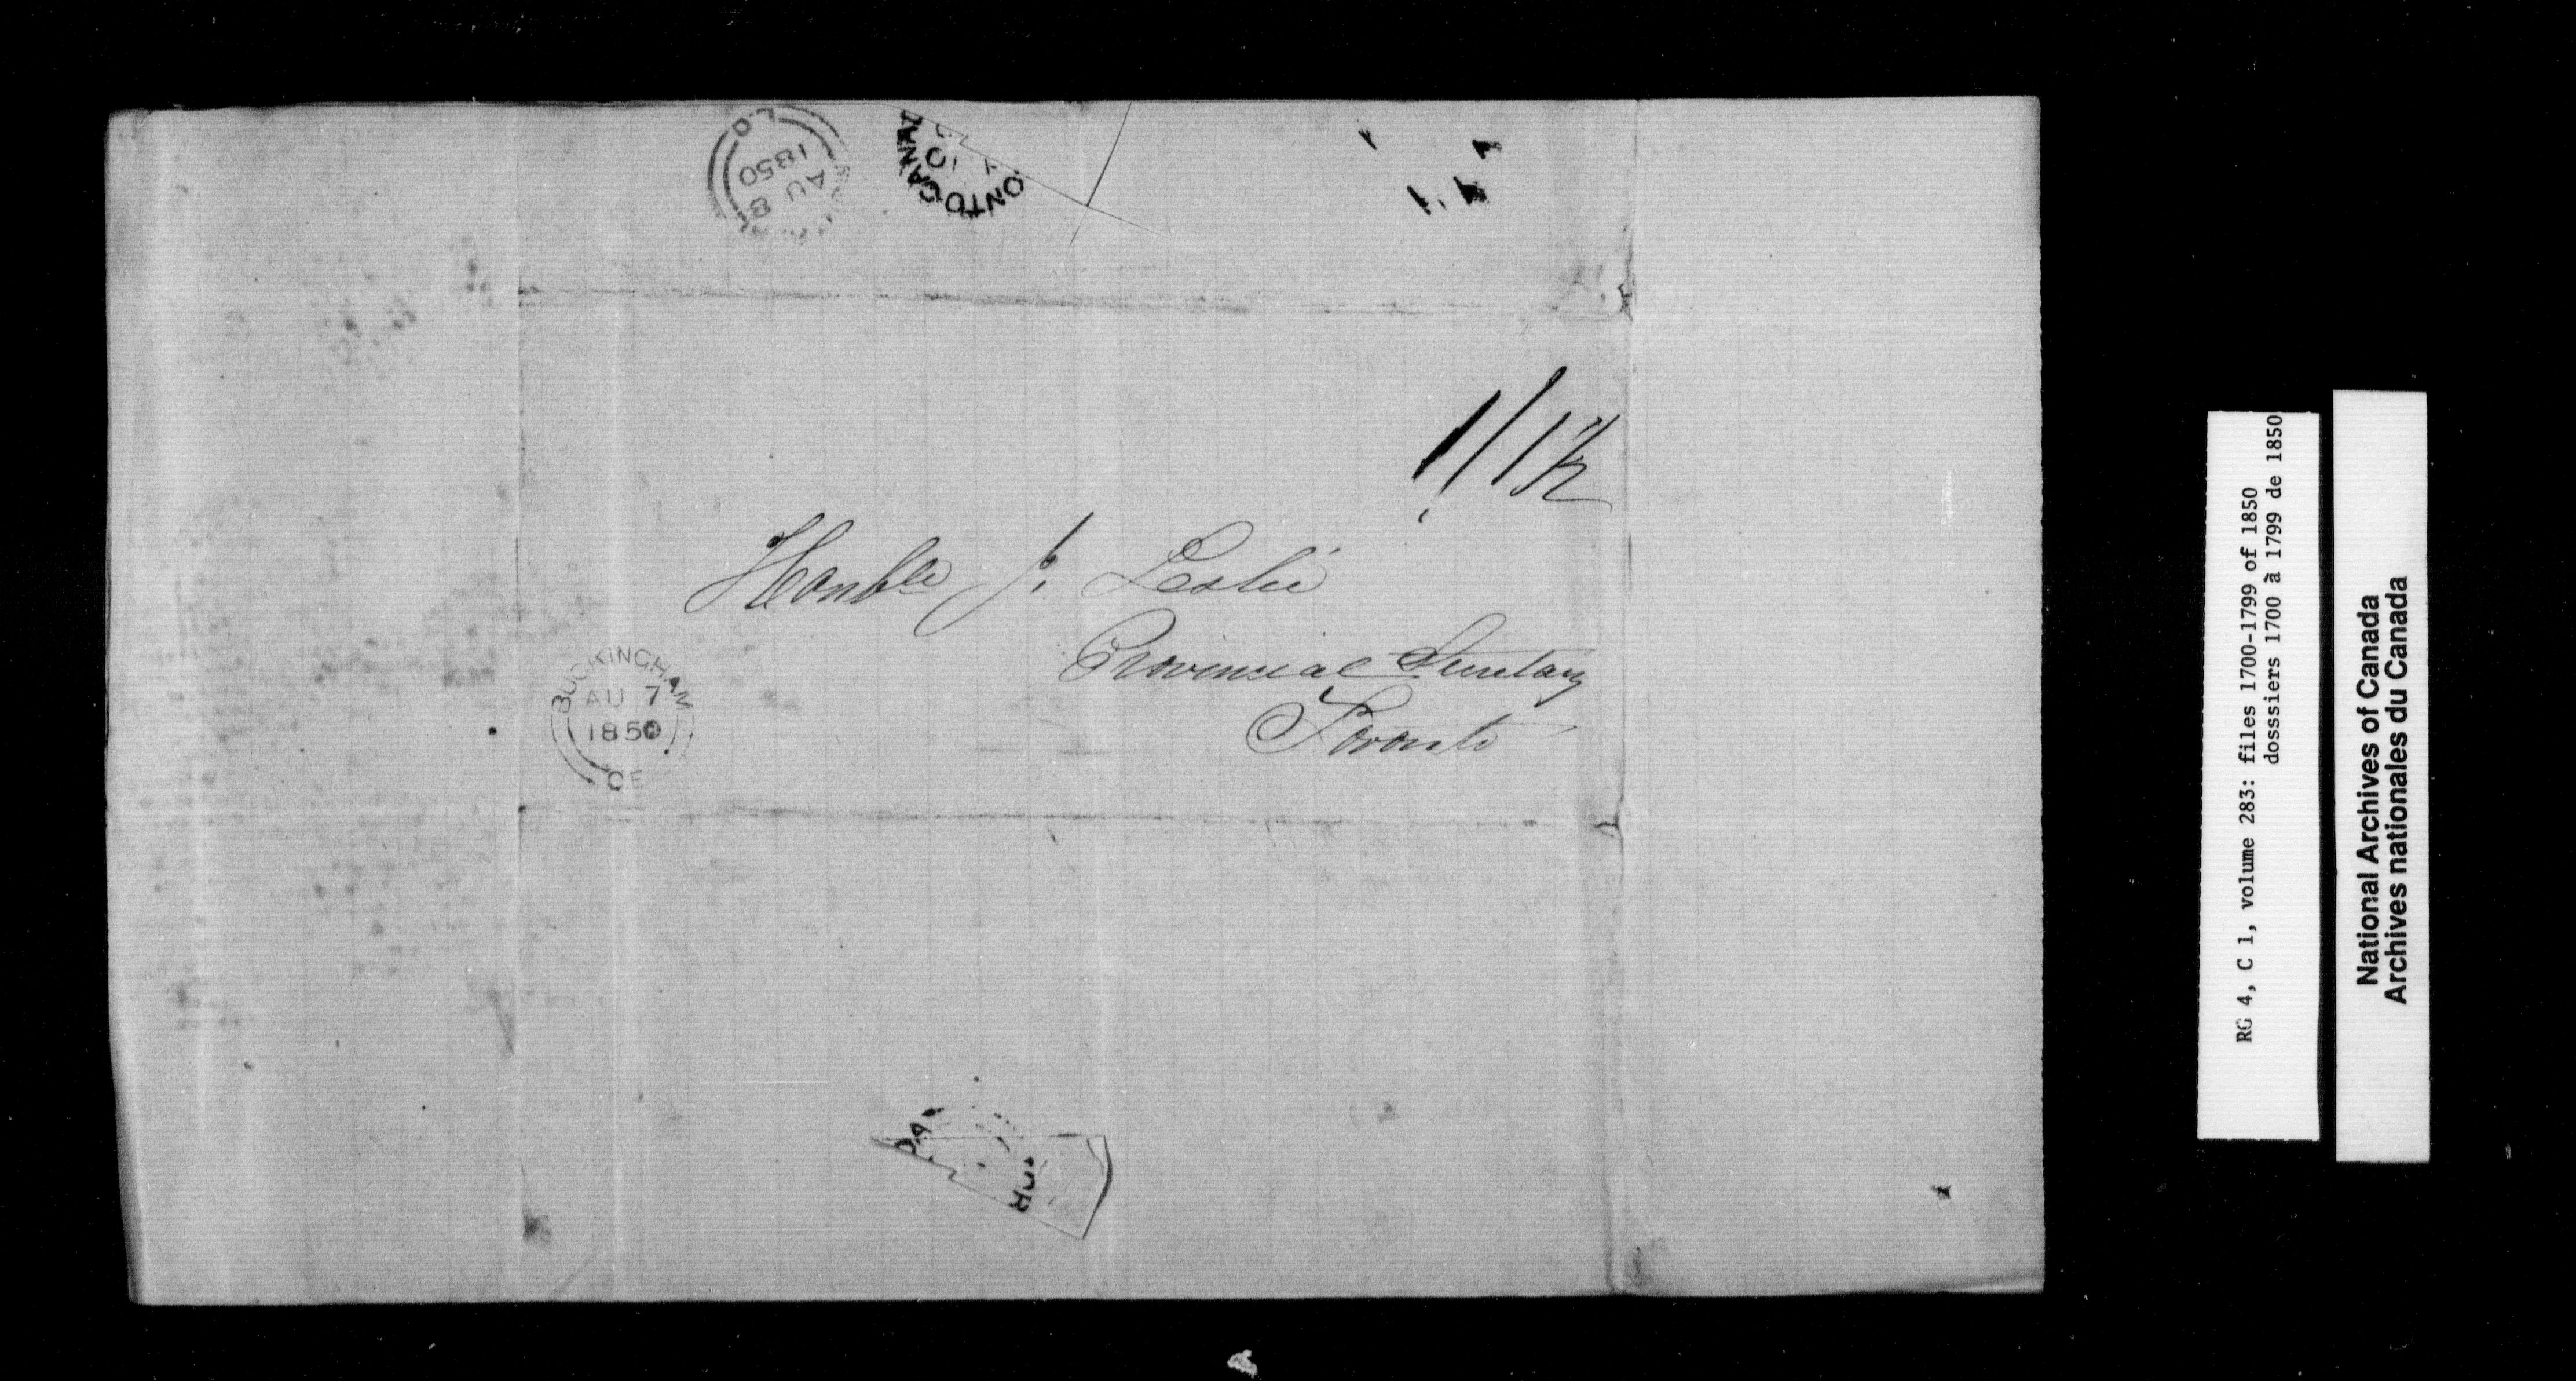 1850
AU 8
ONTO CANA
1/1½
Honble J. Leslie
Provincial Secretary
Toronto
BUCKINGHAM
AU 7
1850
CE
RG 4, C 1, volume 283: files 1700-1799 of 1850
dosssiers 1700 à 1799 de 1850
National Archives of Canada
Archives nationales du Canada